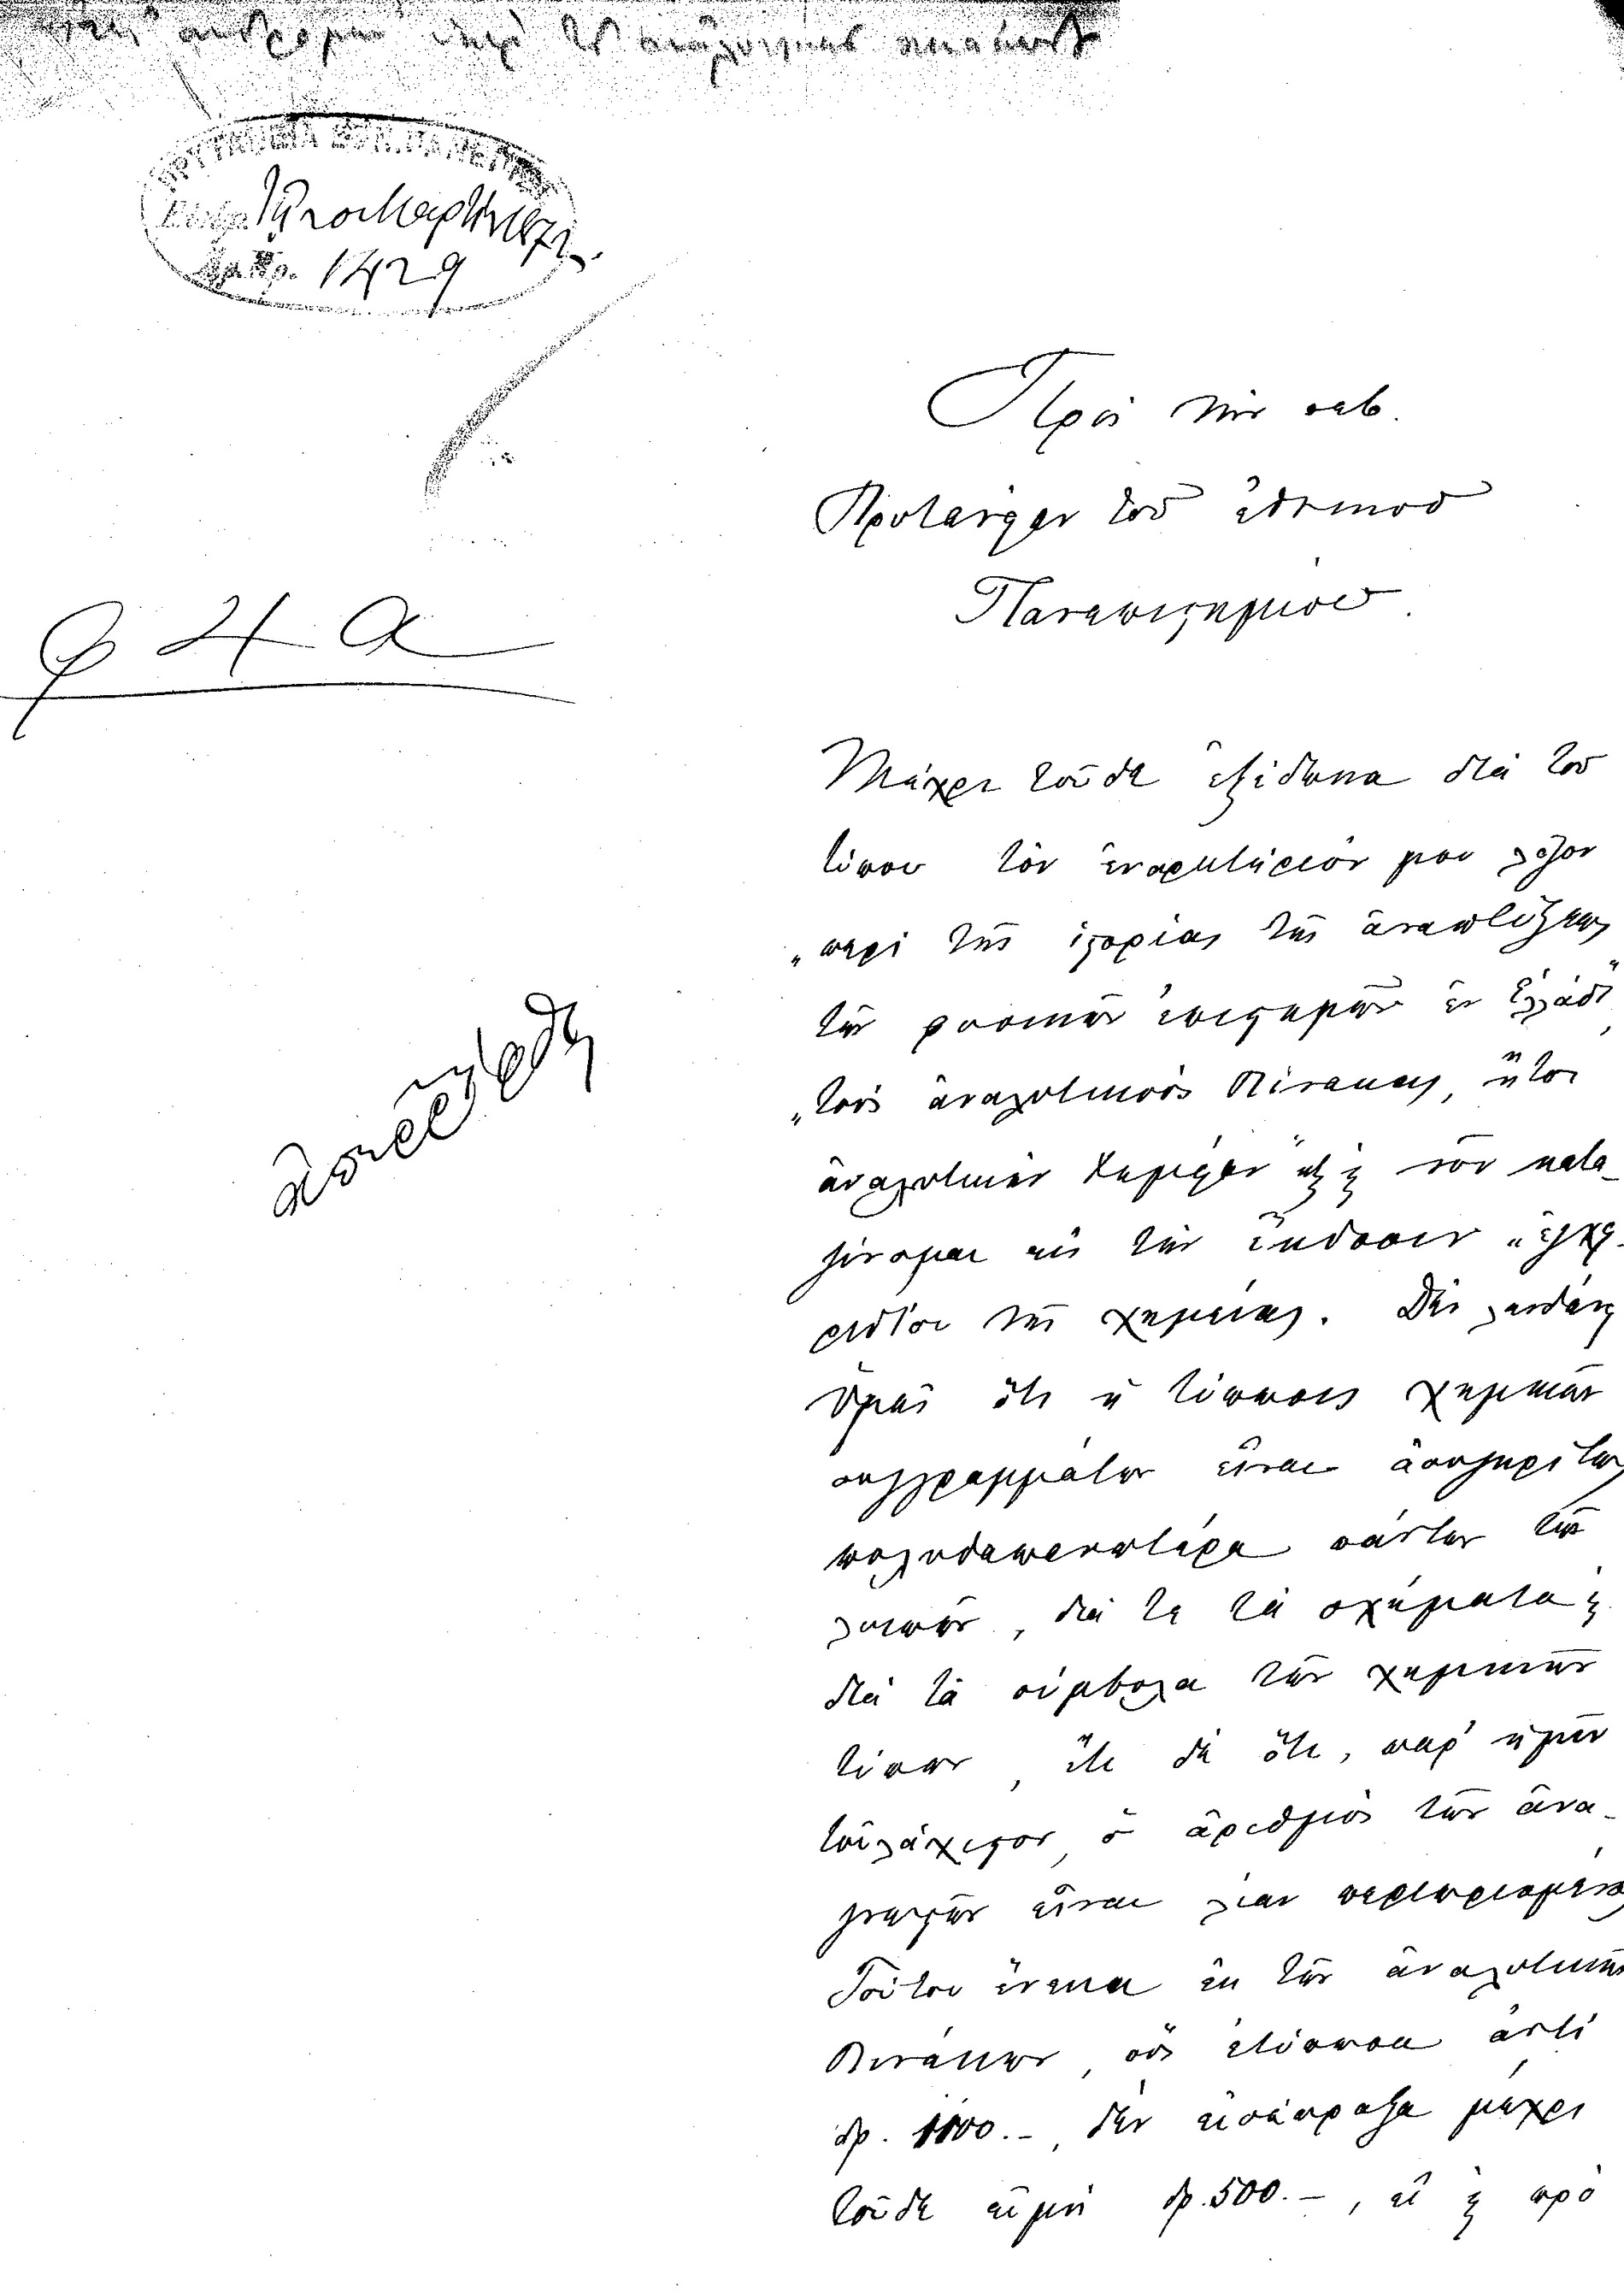 ΠΡΥΤΑΝΕΙΑ ΕΘΝ. ΠΑΝΕΠΙΣΤ
1429
φ 4 α
Πρὸς τὴν σεβ.
Πρυτανείαν τοῦ ἐθνικοῦ
Πανεπιστημίου.
Μέχρι τοῦδε ἐξέδωκα διὰ τοῦ
τύπου τὸν ἐναρκτήριόν μου λόγον
„περὶ τῆς ἱστορίας τῆς ἀναπτύξεως
τῶν φυσικῶν ἐπιστημῶν ἐν Ἑλλάδι",
„τοὺς ἀναλυτικοὺς Πίνακας, ἤτοι
ἀναλυτικὴν Χημείαν" καὶ νῦν κατα-
γίνομαι εἰς τὴν ἔκδοσιν „ἐγχει-
ριδίου τῆς χημείας. Δὲν λανθάνει
ὑμᾶς ὅτι ἡ τύπωσις χημικῶν
συγγραμμάτων εἶναι ἀσυγκρίτως
πολυδαπανωτέρα πάντων τῶν
λοιπῶν, διά τε τὰ σχήματα καὶ
διὰ τὰ σύμβολα τῶν χημικῶν
τύπων, ἔτι δὲ ὅτι, παρ' ἡμῖν
τοὐλάχιστον, ὁ ἀριθμὸς τῶν ἀνα-
γνωστῶν εἶναι λίαν περιωρισμένος
Τούτου ἕνεκα ἐκ τῶν ἀναλυτικῶν
Πινάκων, οὓς ἐτύπωσα ἀντὶ
δρ. 1100.–, δὲν εἰσέπραξα μέχρι
τοῦδε εἰμὴ δρ. 500.–, εἰ καὶ πρὸ